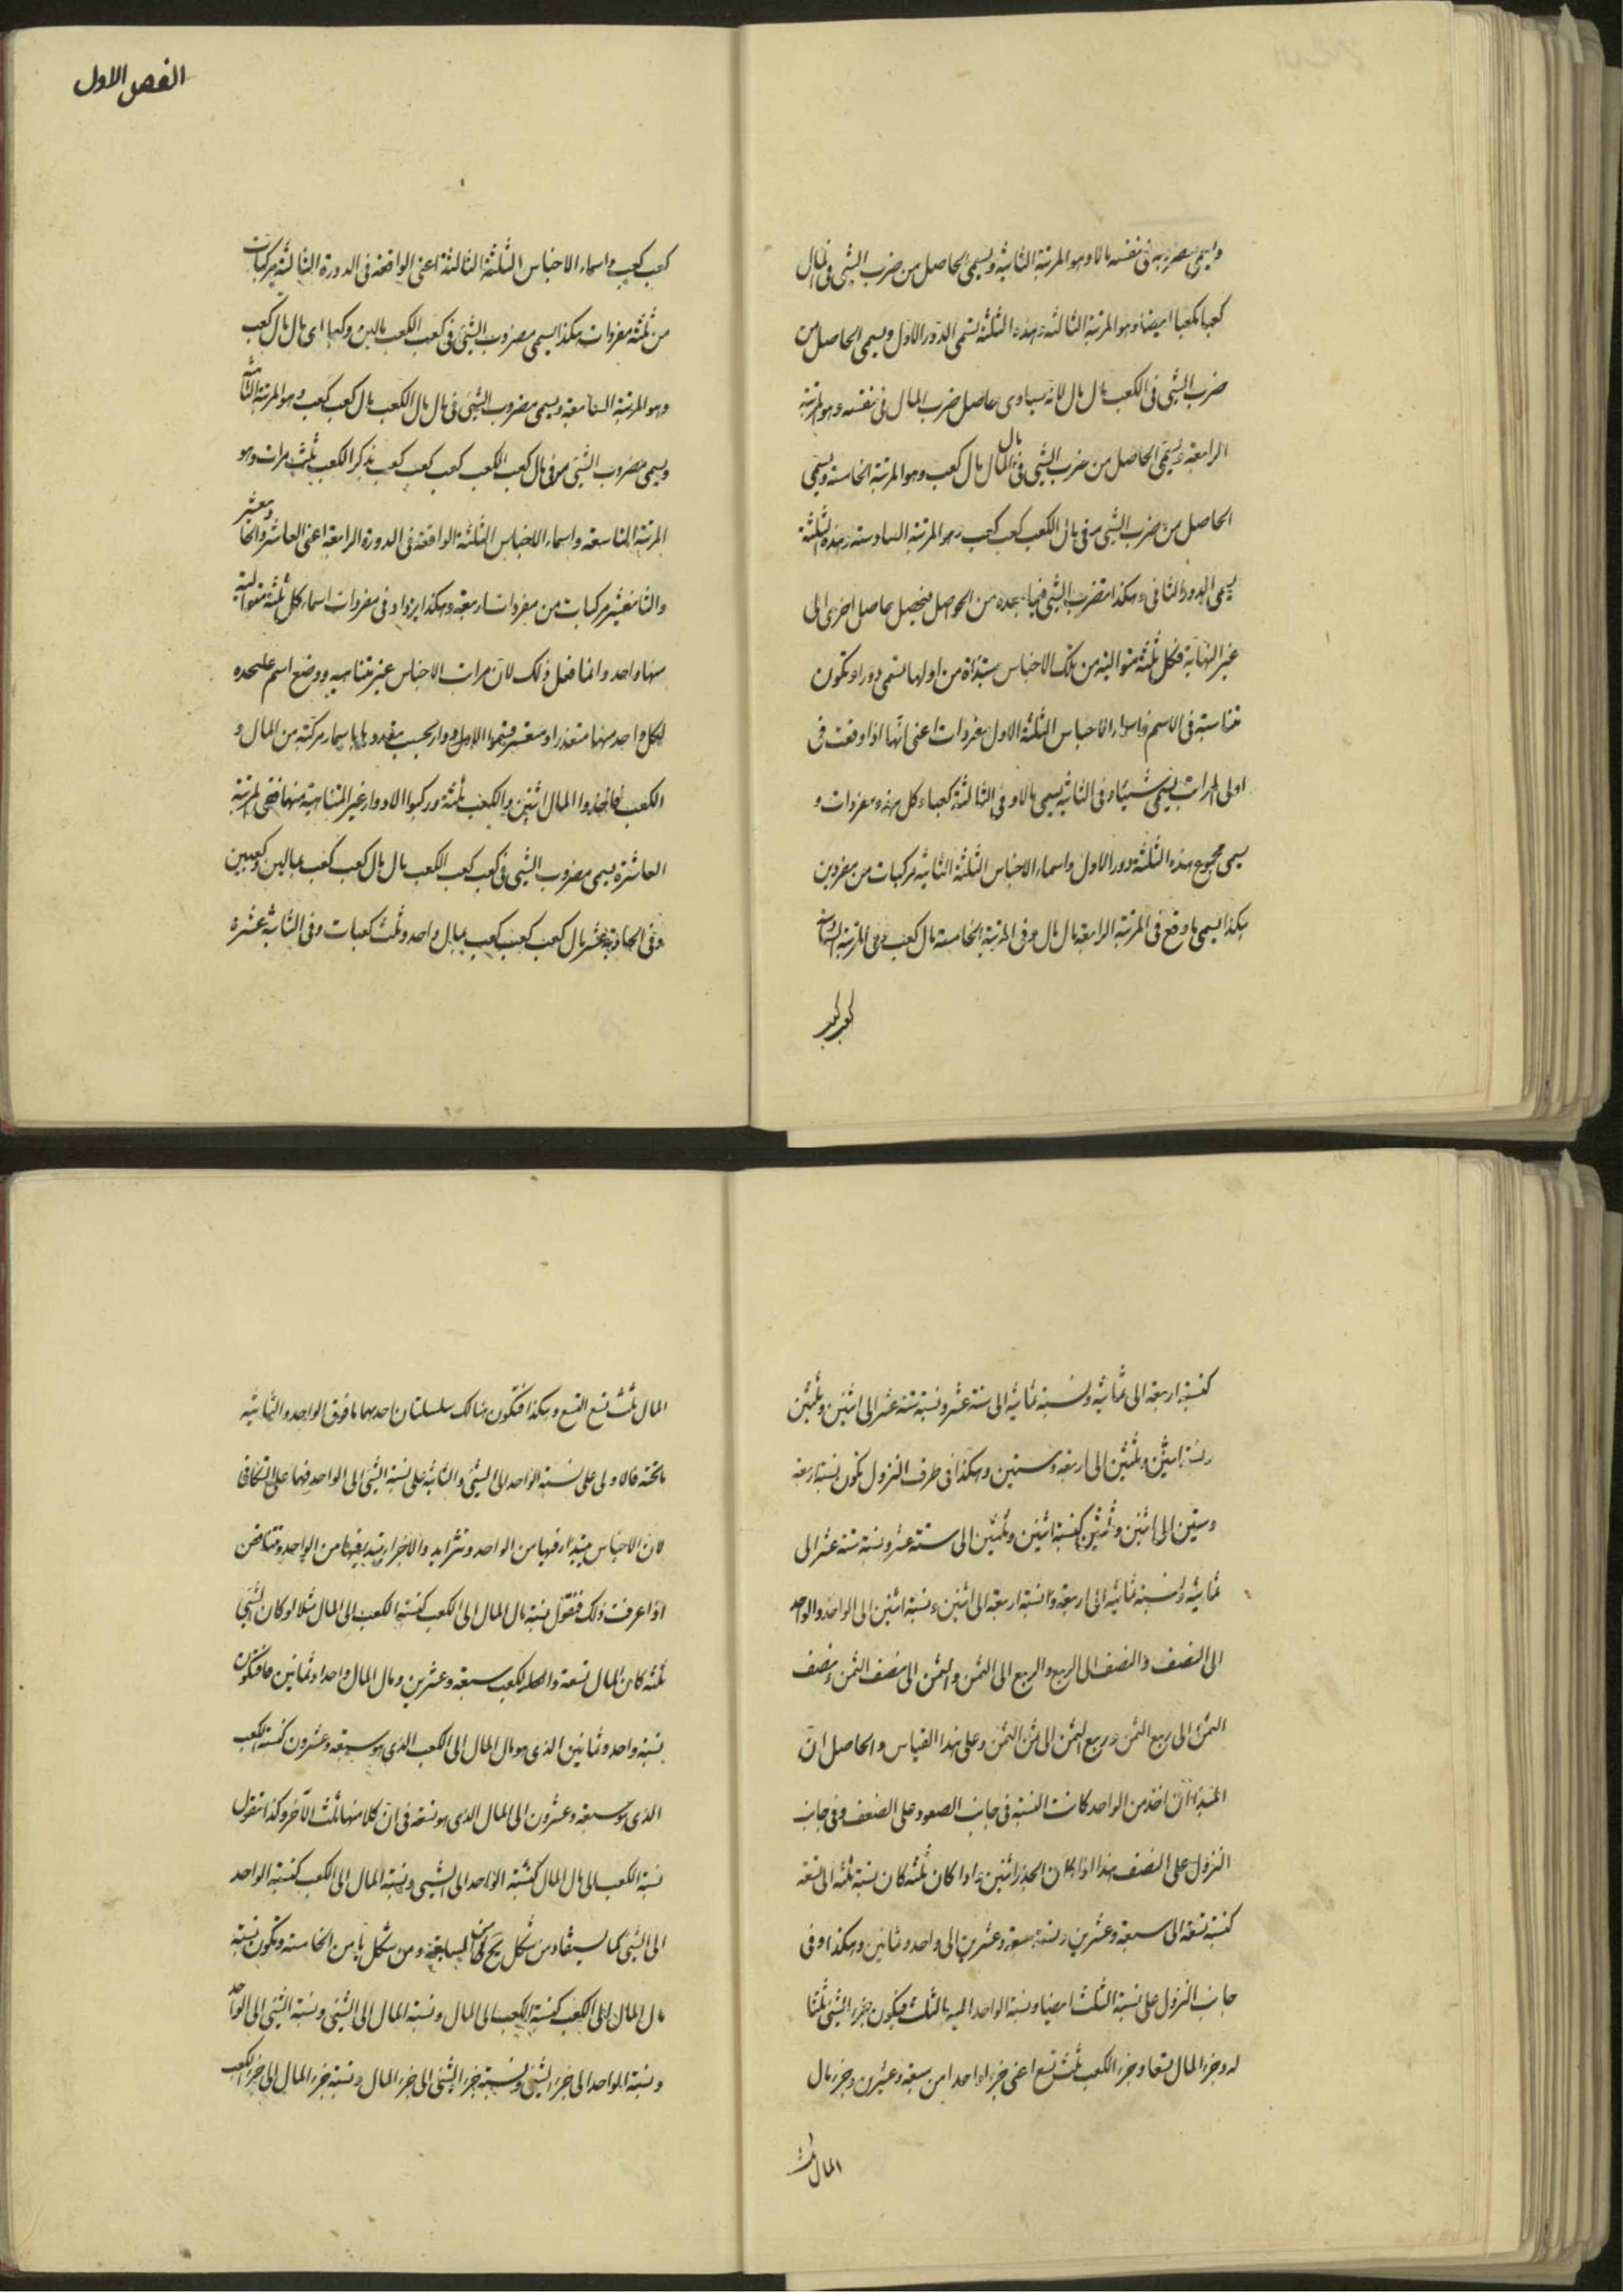 ويسمى مضروبه فى نفسه مالا وهو المرتبة الثانية ويسمى الحاصل من ضرب الشئ فى المال
كعبا مكعبا ايضا وهو المرتبة الثالثة وهذه الثلثة تسمى الدور الاول ويسمى الحاصل من
ضرب الشئ فى الكعب مال مال لانه يساوى حاصل ضرب المال فى نفسه وهو المرتبة
الرابعة ويسمى الحاصل من ضرب الشئ فى مال المال مال كعب وهو المرتبة الخامسة ويسمى
الحاصل من ضرب الشئ فى مال الكعب كعب كعب وهو المرتبة السادسة وهذه الثلثة
يسمى الدور الثانى وهكذا تضرب الشئ فيما بعده من الحواصل فيحصل حاصل اخرى الى
غير النهاية فكل ثلثة متوالية من تلك الاجناس مبتدأة من اولها تسمى دورا وتكون
متناسبة فى الاسم فاسماء الاجناس الثلثة الاول مفردات اعنى انها اذا وقعت فى
اولى المراتب يسمى شيئا وفى الثانية يسمى مالا وفى الثالثة كعبا وكل هذه مفردات و
يسمى مجموع هذه الثلثة دور الاول واسماء الاجناس الثلثة الثانية مركبات من مفردين
هكذا يسمى ما وقع فى المرتبة الرابعة مال مال وفى المرتبة الخامسة مال كعب وفى المرتبة السادسة
كعب كعب
الفصل الاول
كعب كعب واسماء الاجناس الثلثة الثالثة اعنى الواقعة فى الدورة الثالثة مركبات
من ثلثة مفردات هكذا يسمى مضروب الشئ فى كعب الكعب بمالين وكعب اى مال مال كعب
وهو المرتبة السابعة ويسمى مضروب الشئ فى مال مال الكعب مال كعب كعب وهو المرتبة الثامنة
ويسمى مضروب الشئ فى مال كعب الكعب كعب كعب كعب بذكر الكعب ثلث مرات وهو
المرتبة التاسعة واسماء الاجناس الثلثة الواقعة فى الدورة الرابعة اعنى العاشر والحاد يعشر
والثانيعشر مركبات من مفردات اربعة وهكذا يزداد فى مفردات اسماء كل ثلثة متوالية
منها واحد وانما فعل ذلك لان مرات الاجناس غير متناهية ووضع اسم عليحده
لكل واحد منها متعذر او متعسر فتمموا الادوار بحسب بعدها باسماء مركبة من المال و
الكعب فاخذوا المال اثنين والكعب ثلثة وركبوا الادوار غير المتناهية منها ففى المرتبة
العاشرة يسمى مضروب الشئ فى كعب كعب الكعب مال مال كعب كعب بمالين وكعبين
وفى الحادية عشر مال كعب كعب كعب بمال واحد وثلث كعبات وفى الثانية عشرة
كنسبة اربعة الى ثمانية ونسبة ثمانية الى ستة عشر ونسبة ستة عشر الى اثنين وثلثين
ونسبة اثنين وثلثين الى اربعة وستين وهكذا فى طرف النزول يكون نسبة اربعة
وستين الى اثنين وثلثين كنسبة اثنين وثلثين الى ستة عشر ونسبة ستة عشر الى
ثمانية ونسبة ثمانية الى اربعة ونسبة اربعة الى اثنين ونسبة اثنين الى الواحد والواحد
الى النصف والنصف الى الربع والربع الى الثمن والثمن الى نصف الثمن ونصف
الثمن الى ربع الثمن وربع الثمن الى ثمن الثمن وعلى هذا القياس والحاصل ان
المبتدأ ان اخذ من الواحد كانت النسبة فى جانب الصعود على الضعف وفى جانب
النزول على النصف هذا اذا كان الجذر اثنين واذا كان ثلثة كان نسبة ثلثة الى تسعة
كنسبة تسعة الى سبعة وعشرين ونسبة سبعة وعشرين الى واحد وثمانين وهكذا وفى
جانب النزول على نسبة الثلث ايضا ونسبة الواحد اليه بالثلث فيكون جزء الشئ ثلثا
له وجزء المال تسعا وجزء الكعب ثلث تسع اعنى جزءا واحدا من سبعة وعشرين وجزء مال
المال ثلث
المال ثلث تسع التسع وهكذا فتكون هنالك سلسلتان احديهما ما فوق الواحد والثانية
ما تحته فالاولى على نسبة الواحد الى الشئ والثانية على نسبة الشئ الى الواحد فهما على التكافئ
لان الاجناس يبتدأ فيها من الواحد وتتزايد والاجزاء يبتدأ فيها من الواحد وتتناقص
اذا عرفت ذلك فنقول نسبة مال المال الى الكعب كنسبة الكعب الى المال مثلا لو كان الشئ
ثلثة كان المال تسعة والكعب سبعة وعشرين ومال المال واحدا وثمانين فتكون
نسبة واحد وثمانين الذى هو مال المال الى الكعب الذى هو سبعة وعشرون كنسبة الكعب
الذى هو سبعة وعشرون الى المال الذى هو تسعة فى ان كلا منها ثلث الآخر وكذا نقول
نسبة الكعب الى مال المال كنسبة الواحد الى الشئ ونسبة المال الى الكعب كنسبة الواحد
الى الشئ كما يستفاد من شكل يح السابعة ومن شكل يا من الخامسة وتكون نسبة
مال المال الى الكعب كنسبة الكعب الى المال ونسبة المال الى الشئ ونسبة الشئ الى الواحد
ونسبة الواحد الى جزء الشئ ونسبة جزء الشئ الى جزء المال ونسبة جزء المال الى جزء الكعب